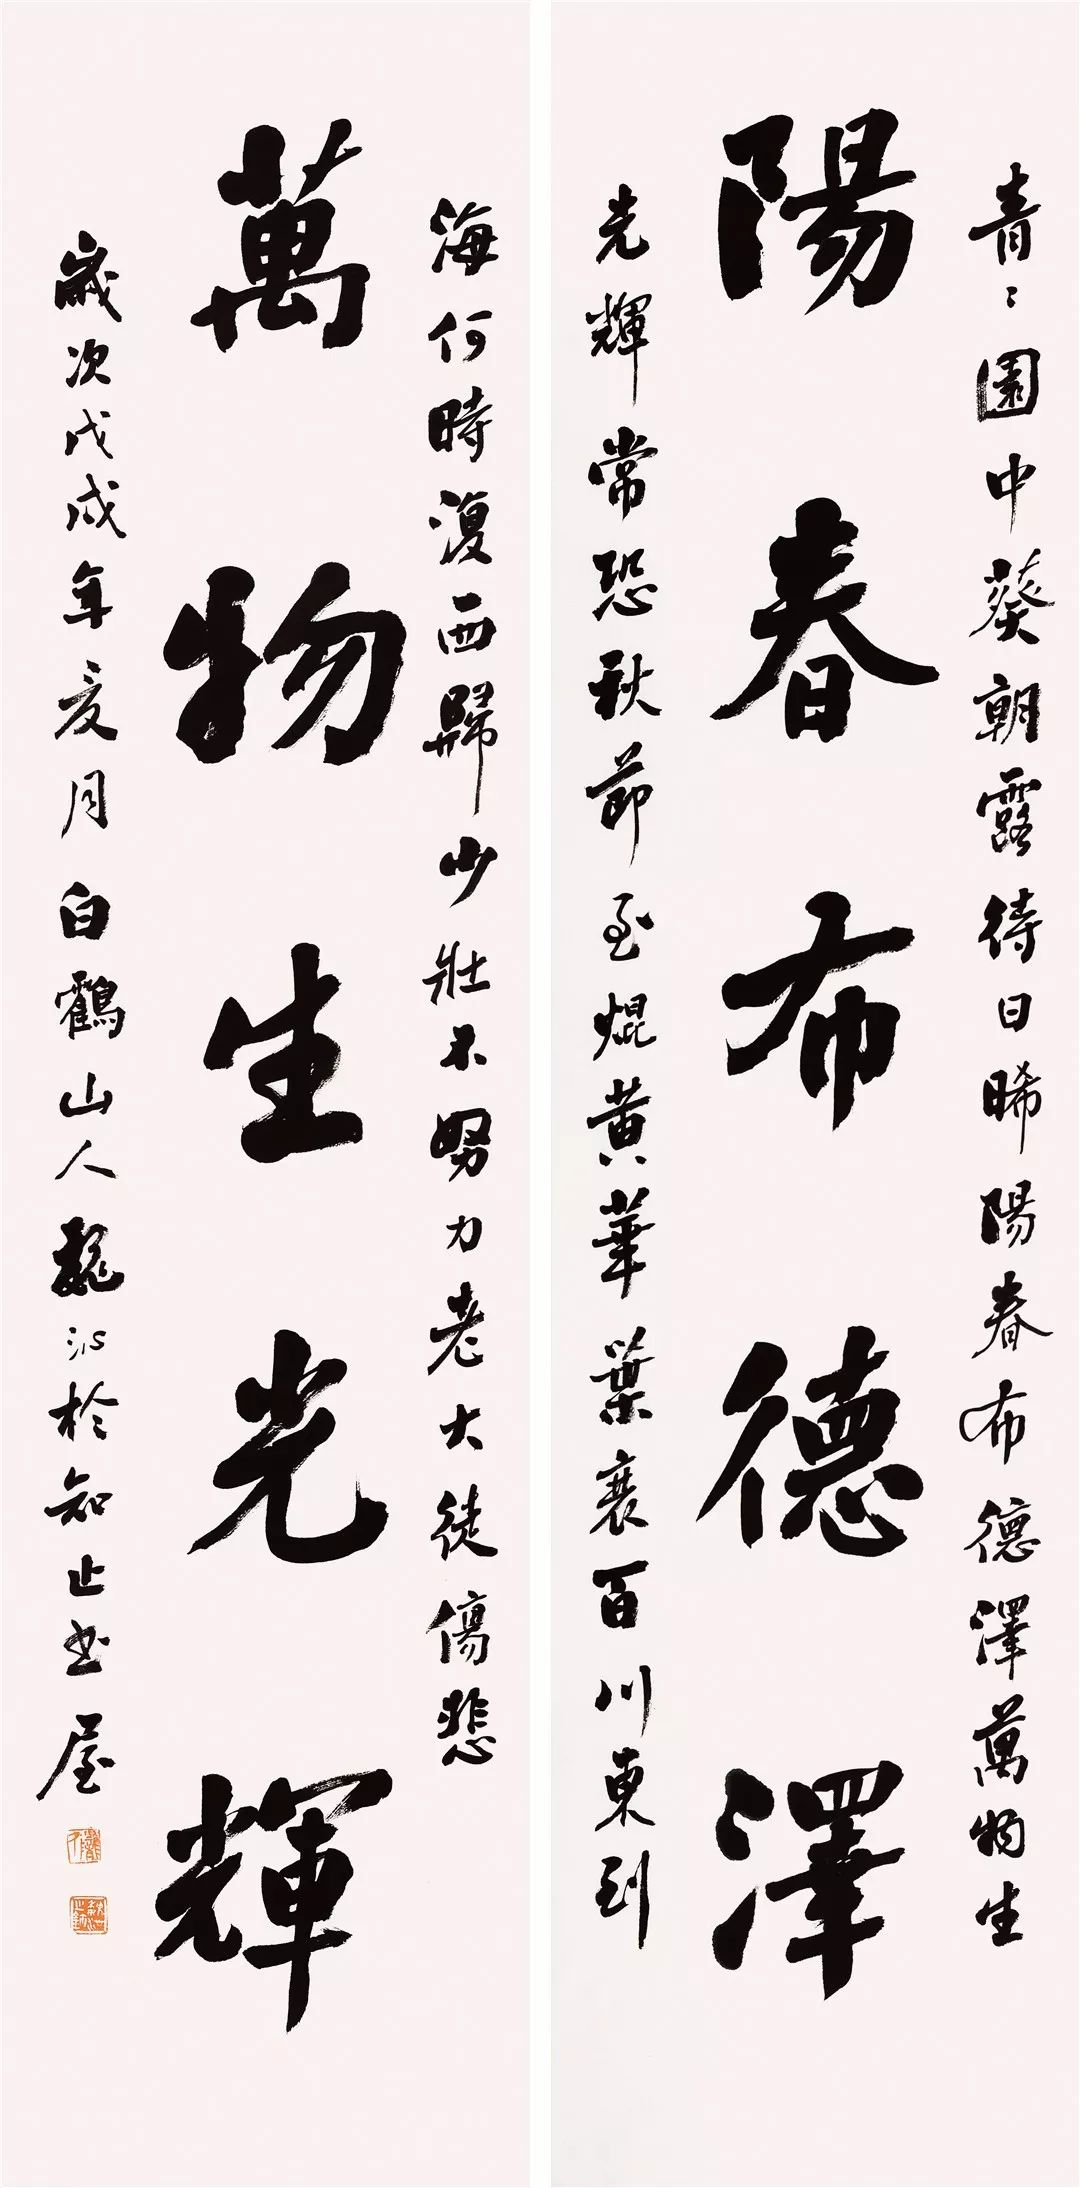 陽春布德澤
萬物生光輝
青〻園中葵朝露待日晞陽春布德澤萬物生
光輝常恐秋節至焜黃華葉衰百川東到
海何時復西歸少壯不努力老大徒傷悲
歲次戊戌年夏月白鶴山人魏於知止书屋